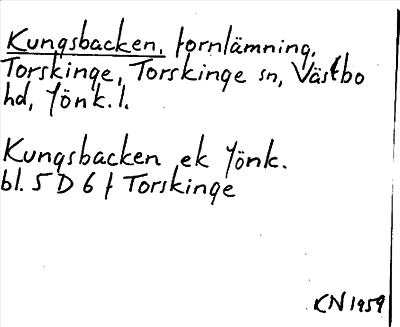 Kungsbacken, fornlämning,
Torskinge, Torskinge sn, Västbo
hd, Jönk. l.
Kungsbacken ek Jönk.
bl. 5 D 6 f Torskinge
KN 1959